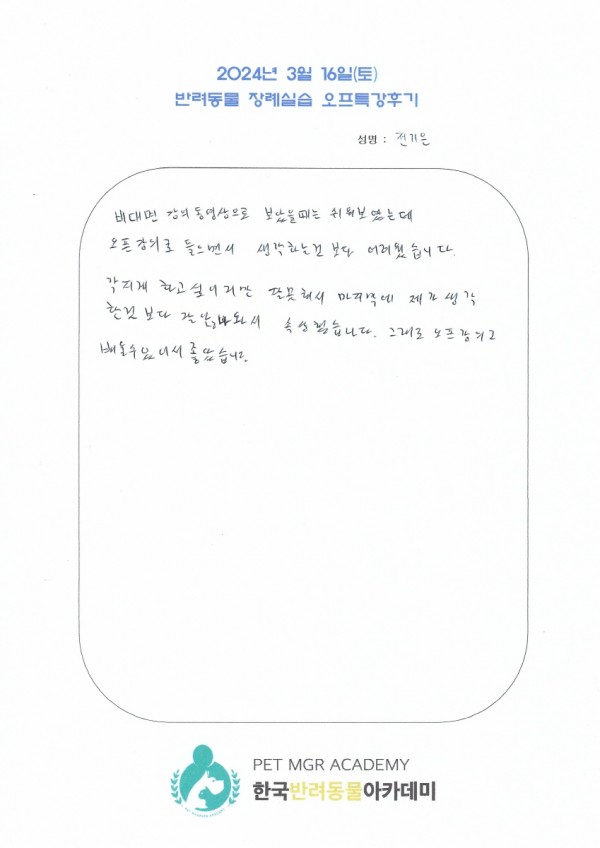 2024년 3월 16일(토)
반려동물 장례실습 오프특강후기
성명 : 전기은
비대면 강의 동영상으로 보았을때는 쉬워보였는데
오프강의로 들으면서 생각하는것 보다 어려웠습니다.
각지게 하고 싶었지만 잘못해서 마지막에 제가 생각
한것 보다 잘 안나와서 속상했습니다. 그래도 오프강의로
배울수있어서 좋았습니다.
PET MGR ACADEMY
한국반려동물아카데미